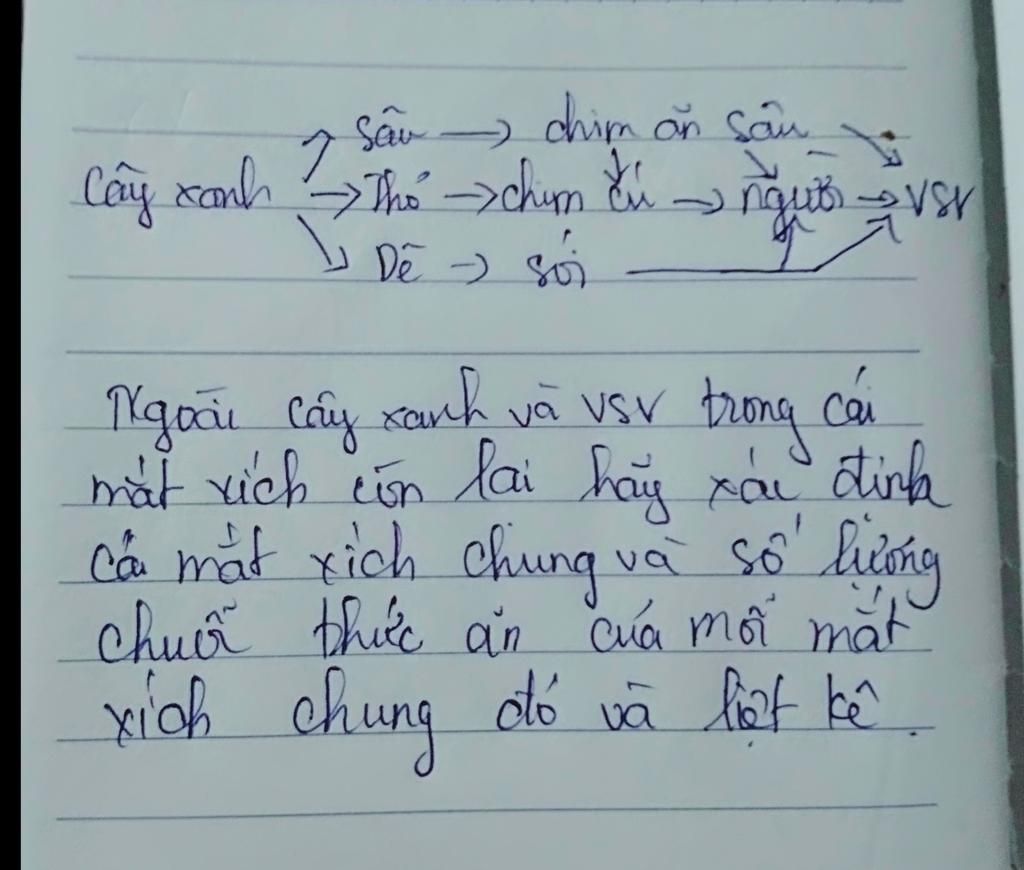 ↗ Sâu → chim ăn sâu ↘
Cây xanh → Thỏ → chim cú → người → VSV
↘ Dê → sói
Ngoài cây xanh và VSV trong cái
mắt xích còn lại hãy xác định
cá mắt xích chung và số lượng
chuỗi thức ăn của mỗi mắt
xích chung đó và liệt kê.